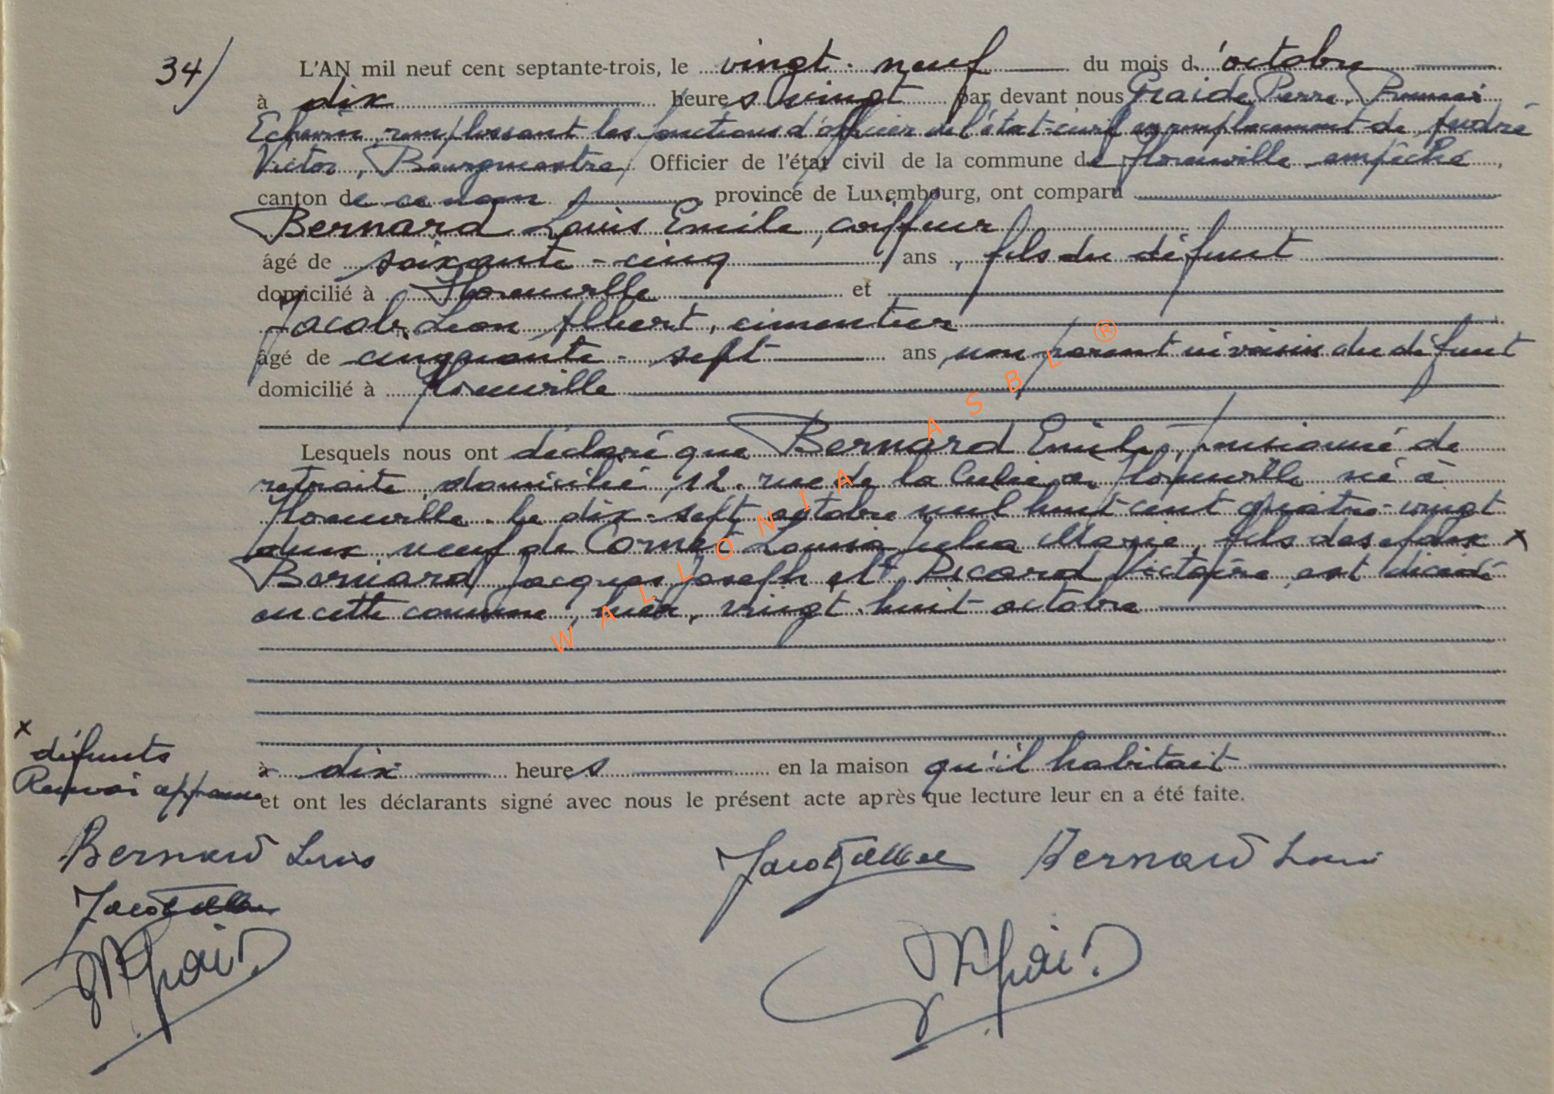 34/ L'AN mil neuf cent septante-trois, le vingt-neuf du mois d'octobre
à dix heures vingt par devant nous Graide Pierre, Premier
Echevin remplissant les fonctions d'officier de l'état-civil en remplacement de André
Victor, Bourgmestre, Officier de l'état civil de la commune de Florenville empêché,
canton de ce nom province de Luxembourg, ont comparu
Bernard Louis Emile, coiffeur
âgé de soixante-cinq ans, fils du défunt
domicilié à Florenville et
Jacob Léon Albert, cimentier
âgé de cinquante-sept ans non parent ni voisin du défunt
domicilié à Florenville
Lesquels nous ont déclaré que Bernard Emile, pensionné de
retraite, domicilié 12, rue de la à Florenville né à
Florenville le dix-sept octobre mil huit cent quatre-vingt
deux veuf de Cornet Louisa Julia Marie, fils des époux x
Bernard Jacques Joseph et Picard Victoire, est décédé
en cette commune, hier, vingt-huit octobre
x
défunts
Renvoi approuvé
à dix heures en la maison qu'il habitait
et ont les déclarants signé avec nous le présent acte après que lecture leur en a été faite.
Bernard Louis Jacob Albert Bernard Louis
Jacob Albert
WALLONIA ASBL ®